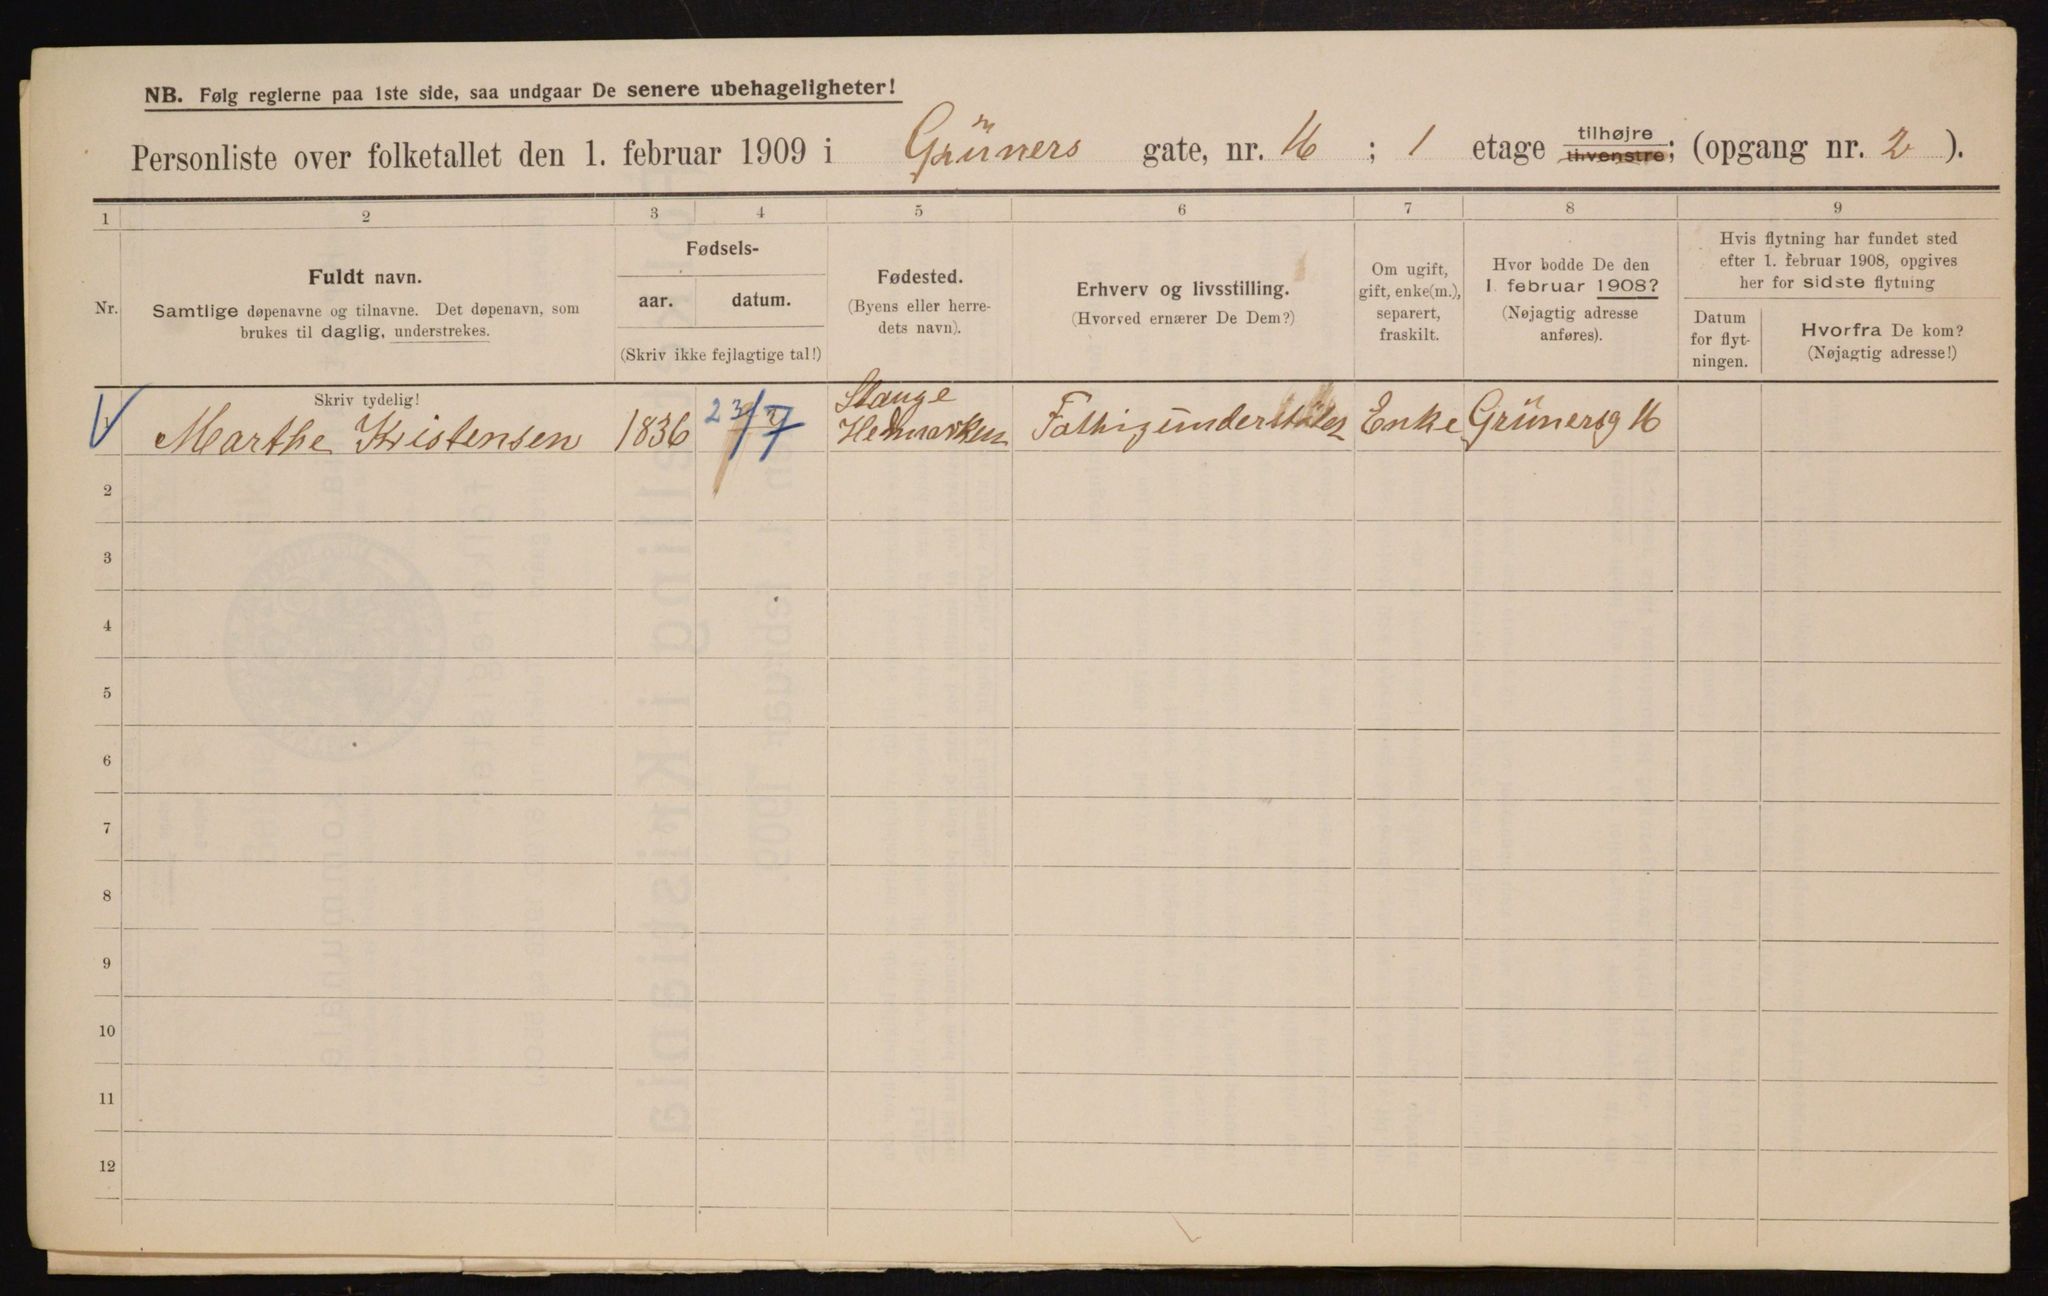 NB. Følg reglerne paa 1ste side, saa undgaar De senere ubehageligheter!
Personliste over folketallet den 1. februar 1909 i Grüners gate, nr. 16 ; 1 etage tilhøjre tilvenstre; (opgang nr. 2 ).
1 2 3 4 5 6 7 8 9
Nr.
Fuldt navn.
Samtlige døpenavne og tilnavne. Det døpenavn, som
brukes til daglig, understrekes.
Fødsels-
aar. datum.
(Skriv ikke fejlagtige tal!)
Fødested.
(Byens eller herre-
dets navn).
Erhverv og livsstilling.
(Hvorved ernærer De Dem?)
Om ugift,
gift, enke(m.),
separert,
fraskilt.
Hvor bodde De den
1. februar 1908?
(Nøjagtig adresse
anføres).
Hvis flytning har fundet sted
efter 1. februar 1908, opgives
her for sidste flytning
Datum
for flyt-
ningen.
Hvorfra De kom?
(Nøjagtig adresse!)
Skriv tydelig!
Marthe Kristensen 1836 23/7 Stange Hedmarken Enke Grünersg 16
2
3
4
5
6
7
8
9
10
11
12